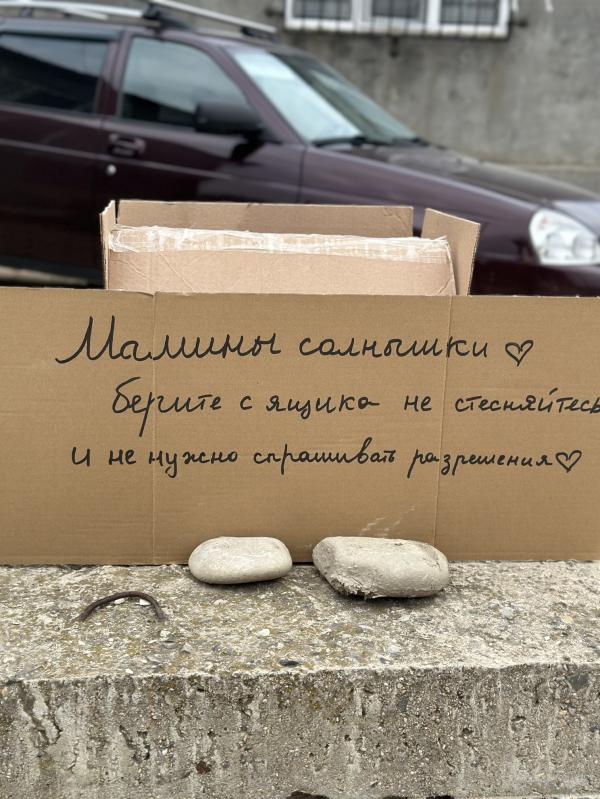 Мамины солнышки ♡
берите с ящика не стесняйтесь
и не нужно спрашивать разрешения ♡